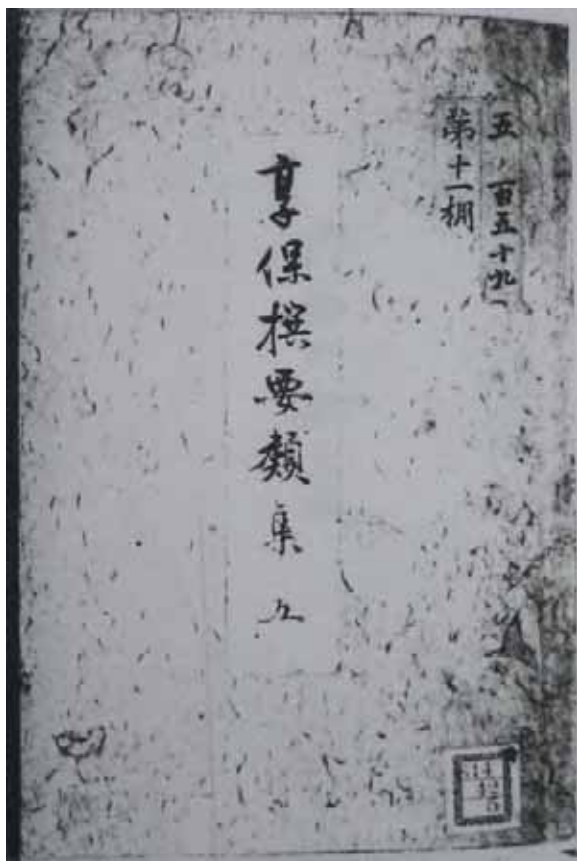 五ノ百五十九一
第十一棚
享保撰要類集 九